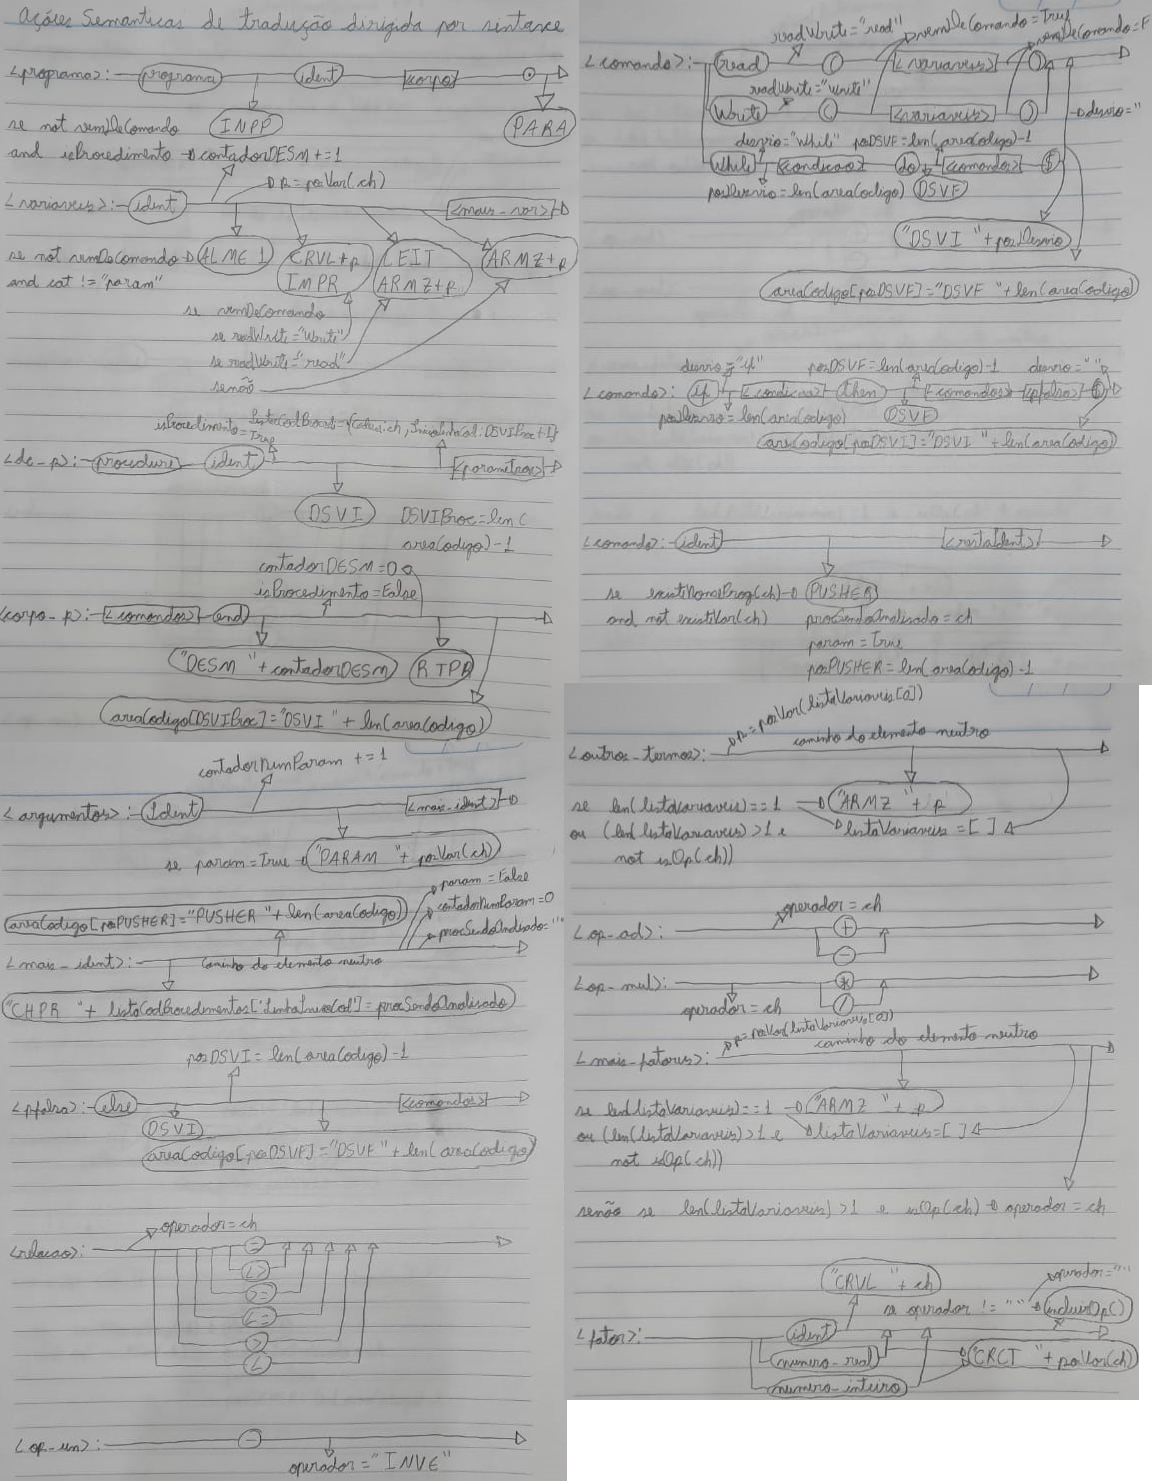 Ações Semanticas de tradução dirigida por sintaxe
<programa>: programa ident <corpo> .
INPP
PARA
se not vemDeComando
and isProcedimento contadorDESM+=1
p=posVar(ch)
<variaveis>: ident <mais_var>
se not vemDeComando ALME 1
and cat != "param"
CRVL+p
IMPR
LEIT
ARMZ+p
ARMZ+p
se vemDeComando
se readWrite="Write"
se readWrite="read"
senão
isProcedimento=
True
<dc_p>: procedure ident <parametros>
DSVI DSVIProc=len(
areaCodigo)-1
contadorDESM=0
isProcedimento=False
<corpo_p>: <comandos> end
"DESM "+contadorDESM RTPR
areaCodigo[DSVIProc]="DSVI "+len(areaCodigo)
contadorNumParam += 1
<argumentos>: Ident <mais_ident>
se param=True "PARAM "+posVar(ch)
param = False
contadorNumParam=0
procSendoAnalisado=""
areaCodigo[posPUSHER]="PUSHER "+len(areaCodigo)
<mais_ident>: caminho do elemento neutro
"CHPR "+ listaCodProcedimentos['LinhaInicoCod']=procSendoAnalisado
posDSVI = len(areaCodigo)-1
<pfalsa>: else <comandos>
DSVI
areaCodigo[posDSVF]="DSVF "+len(areaCodigo)
operador=ch
<relacao>: =
<>
>=
<=
>
<
<op_un>: -
operador="INVE"
readWrite="read" vemDeComando=True
vemDeComando=F
<comando>: read ( <variaveis> )
readWrite="Write"
Write ( <variaveis> ) desvio=""
desvio="While" posDSVF=len(areaCodigo)-1
While <condicao> do <comandos> $
posDesvio=len(areaCodigo) DSVF
"DSVI "+posDesvio
areaCodigo[posDSVF]="DSVF "+len(areaCodigo)
desvio="if" posDSVF=len(areaCodigo)-1 desvio=""
<comando>: if <condicao> then <comandos> <pfalsa> $
posDesvio=len(areaCodigo) DSVF
areaCodigo[posDSVI]="DSVI "+len(areaCodigo)
<comando>: ident <restoIdent>
se existNomeProg(ch) PUSHER
and not existVar(ch) procSendoAnalisado=ch
param=True
posPUSHER=len(areaCodigo)-1
p=posVar(listaVariaveis[0])
<outros_termos>: caminho do elemento neutro
se len(listaVariaveis)==1 "ARMZ "+p
ou (len(listaVariaveis)>1 e listaVariaveis=[]
not isOp(ch))
operador=ch
<op_ad>: +
-
<op_mul>: *
operador=ch /
p=posVar(listaVariaveis[0])
<mais_fatores>: caminho do elemento neutro
se len(listaVariaveis)==1 "ARMZ "+p
ou (len(listaVariaveis)>1 e listaVariaveis=[]
not isOp(ch))
senão se len(listaVariaveis)>1 e isOp(ch) operador=ch
"CRVL "+ch operador=""
se operador != "" incluirOp()
<fator>: ident
numero_real "CRCT "+posVar(ch)
numero_inteiro